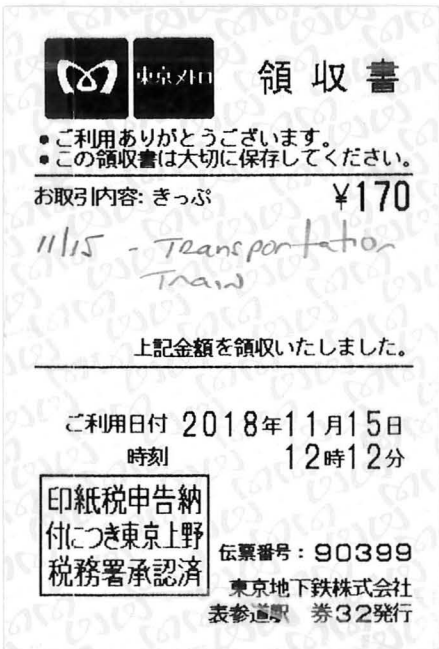 東京メトロ 領収書
• ご利用ありがとうございます。
• この領収書は大切に保存してください。
お取引内容: きっぷ ¥170
11/15 - Transportation
Train
上記金額を領収いたしました。
ご利用日付 2018年11月15日
時刻 12時12分
印紙税申告納
付につき東京上野
税務署承認済
伝票番号：90399
東京地下鉄株式会社
表参道駅 券32発行